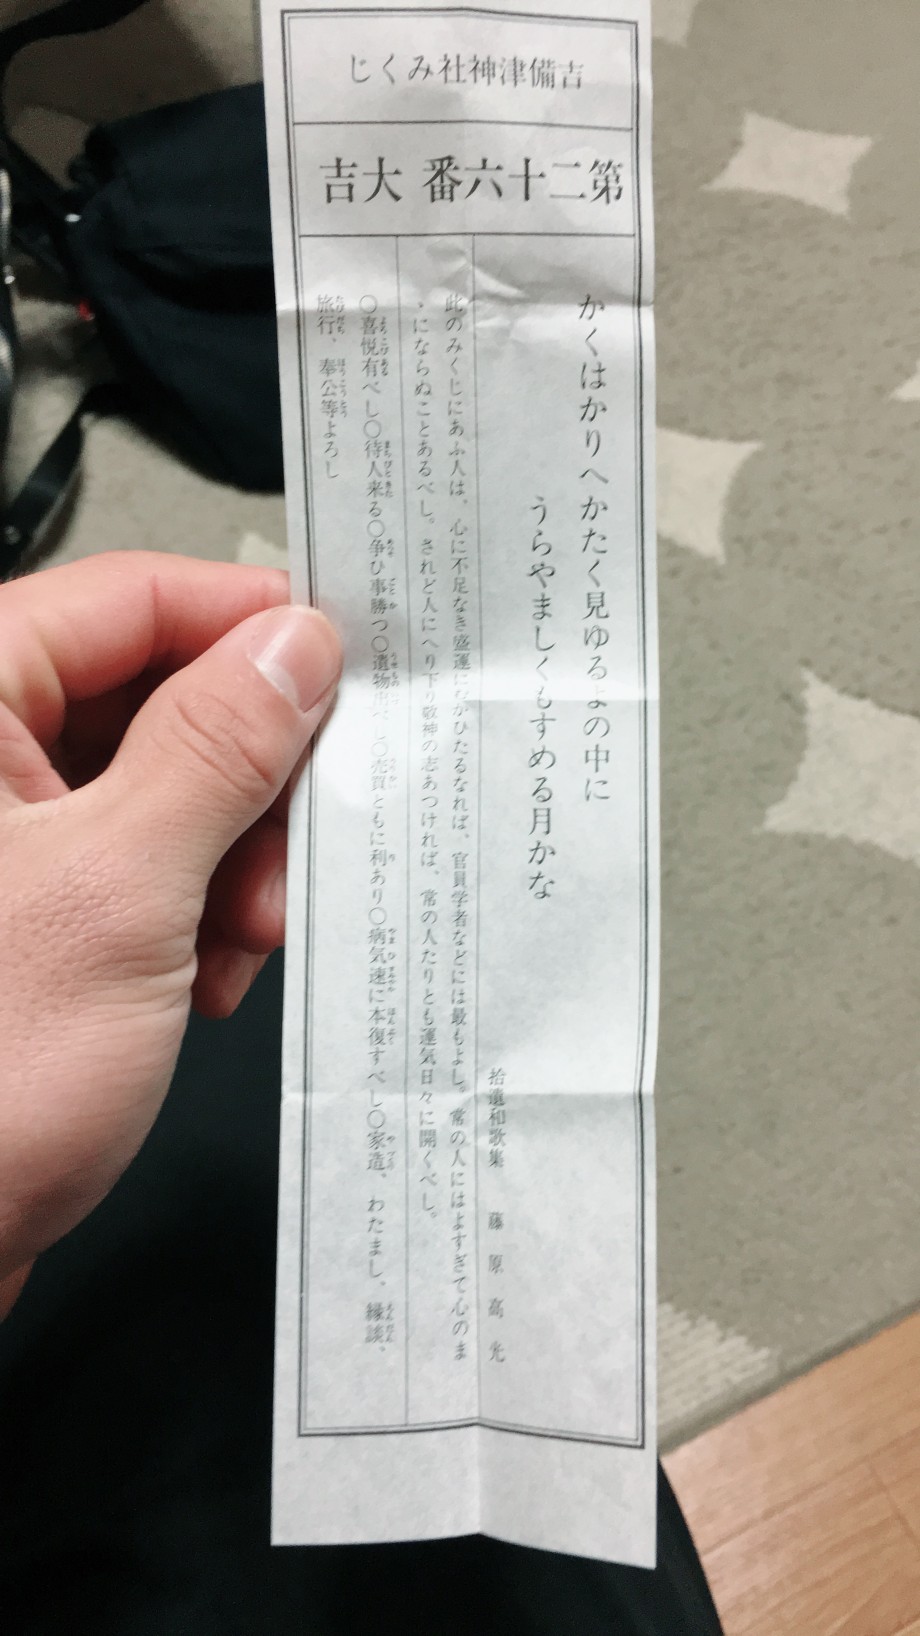 吉備津神社みくじ
第二十六番 大吉
かくはかりへかたく見ゆるよの中に
うらやましくもすめる月かな
拾遺和歌集 藤原高光
此のみくじにあふ人は、心に不足なき盛運にむかひたるなれば、官員学者などには最もよし。常の人にはよすぎて心のま
ゝにならぬことあるべし。されど人にへり下り敬神の志あつければ、常の人たりとも運気日々に開くべし。
〇喜悦有べし〇待人来る〇争ひ事勝つ〇遺物出べし〇売買ともに利あり〇病気速に本復すべし〇家造、わたまし、縁談、
旅行、奉公等よろし